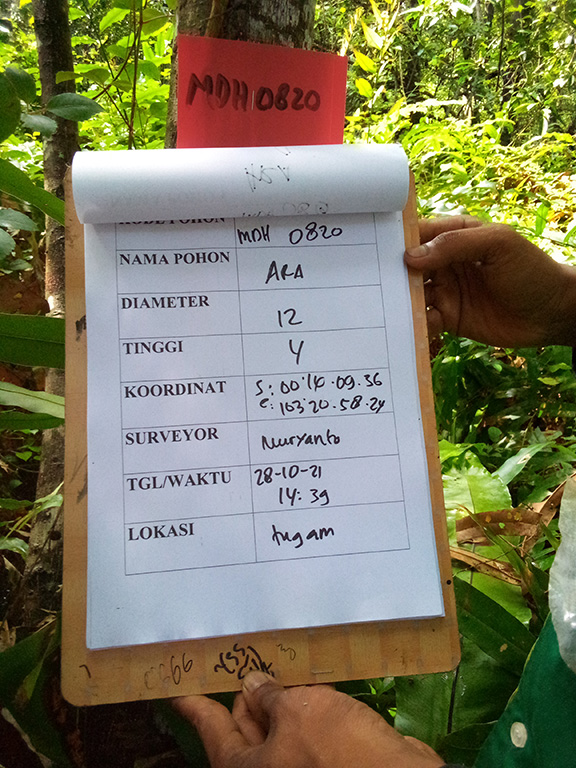 MDH 0820
KODE POHON MDH 0820
NAMA POHON ARA
DIAMETER 12
TINGGI 4
KOORDINAT S: 00'14.09.36
E: 103'20.58.24
SURVEYOR Nuryanto
TGL/WAKTU 28-10-21
14:39
LOKASI tugam